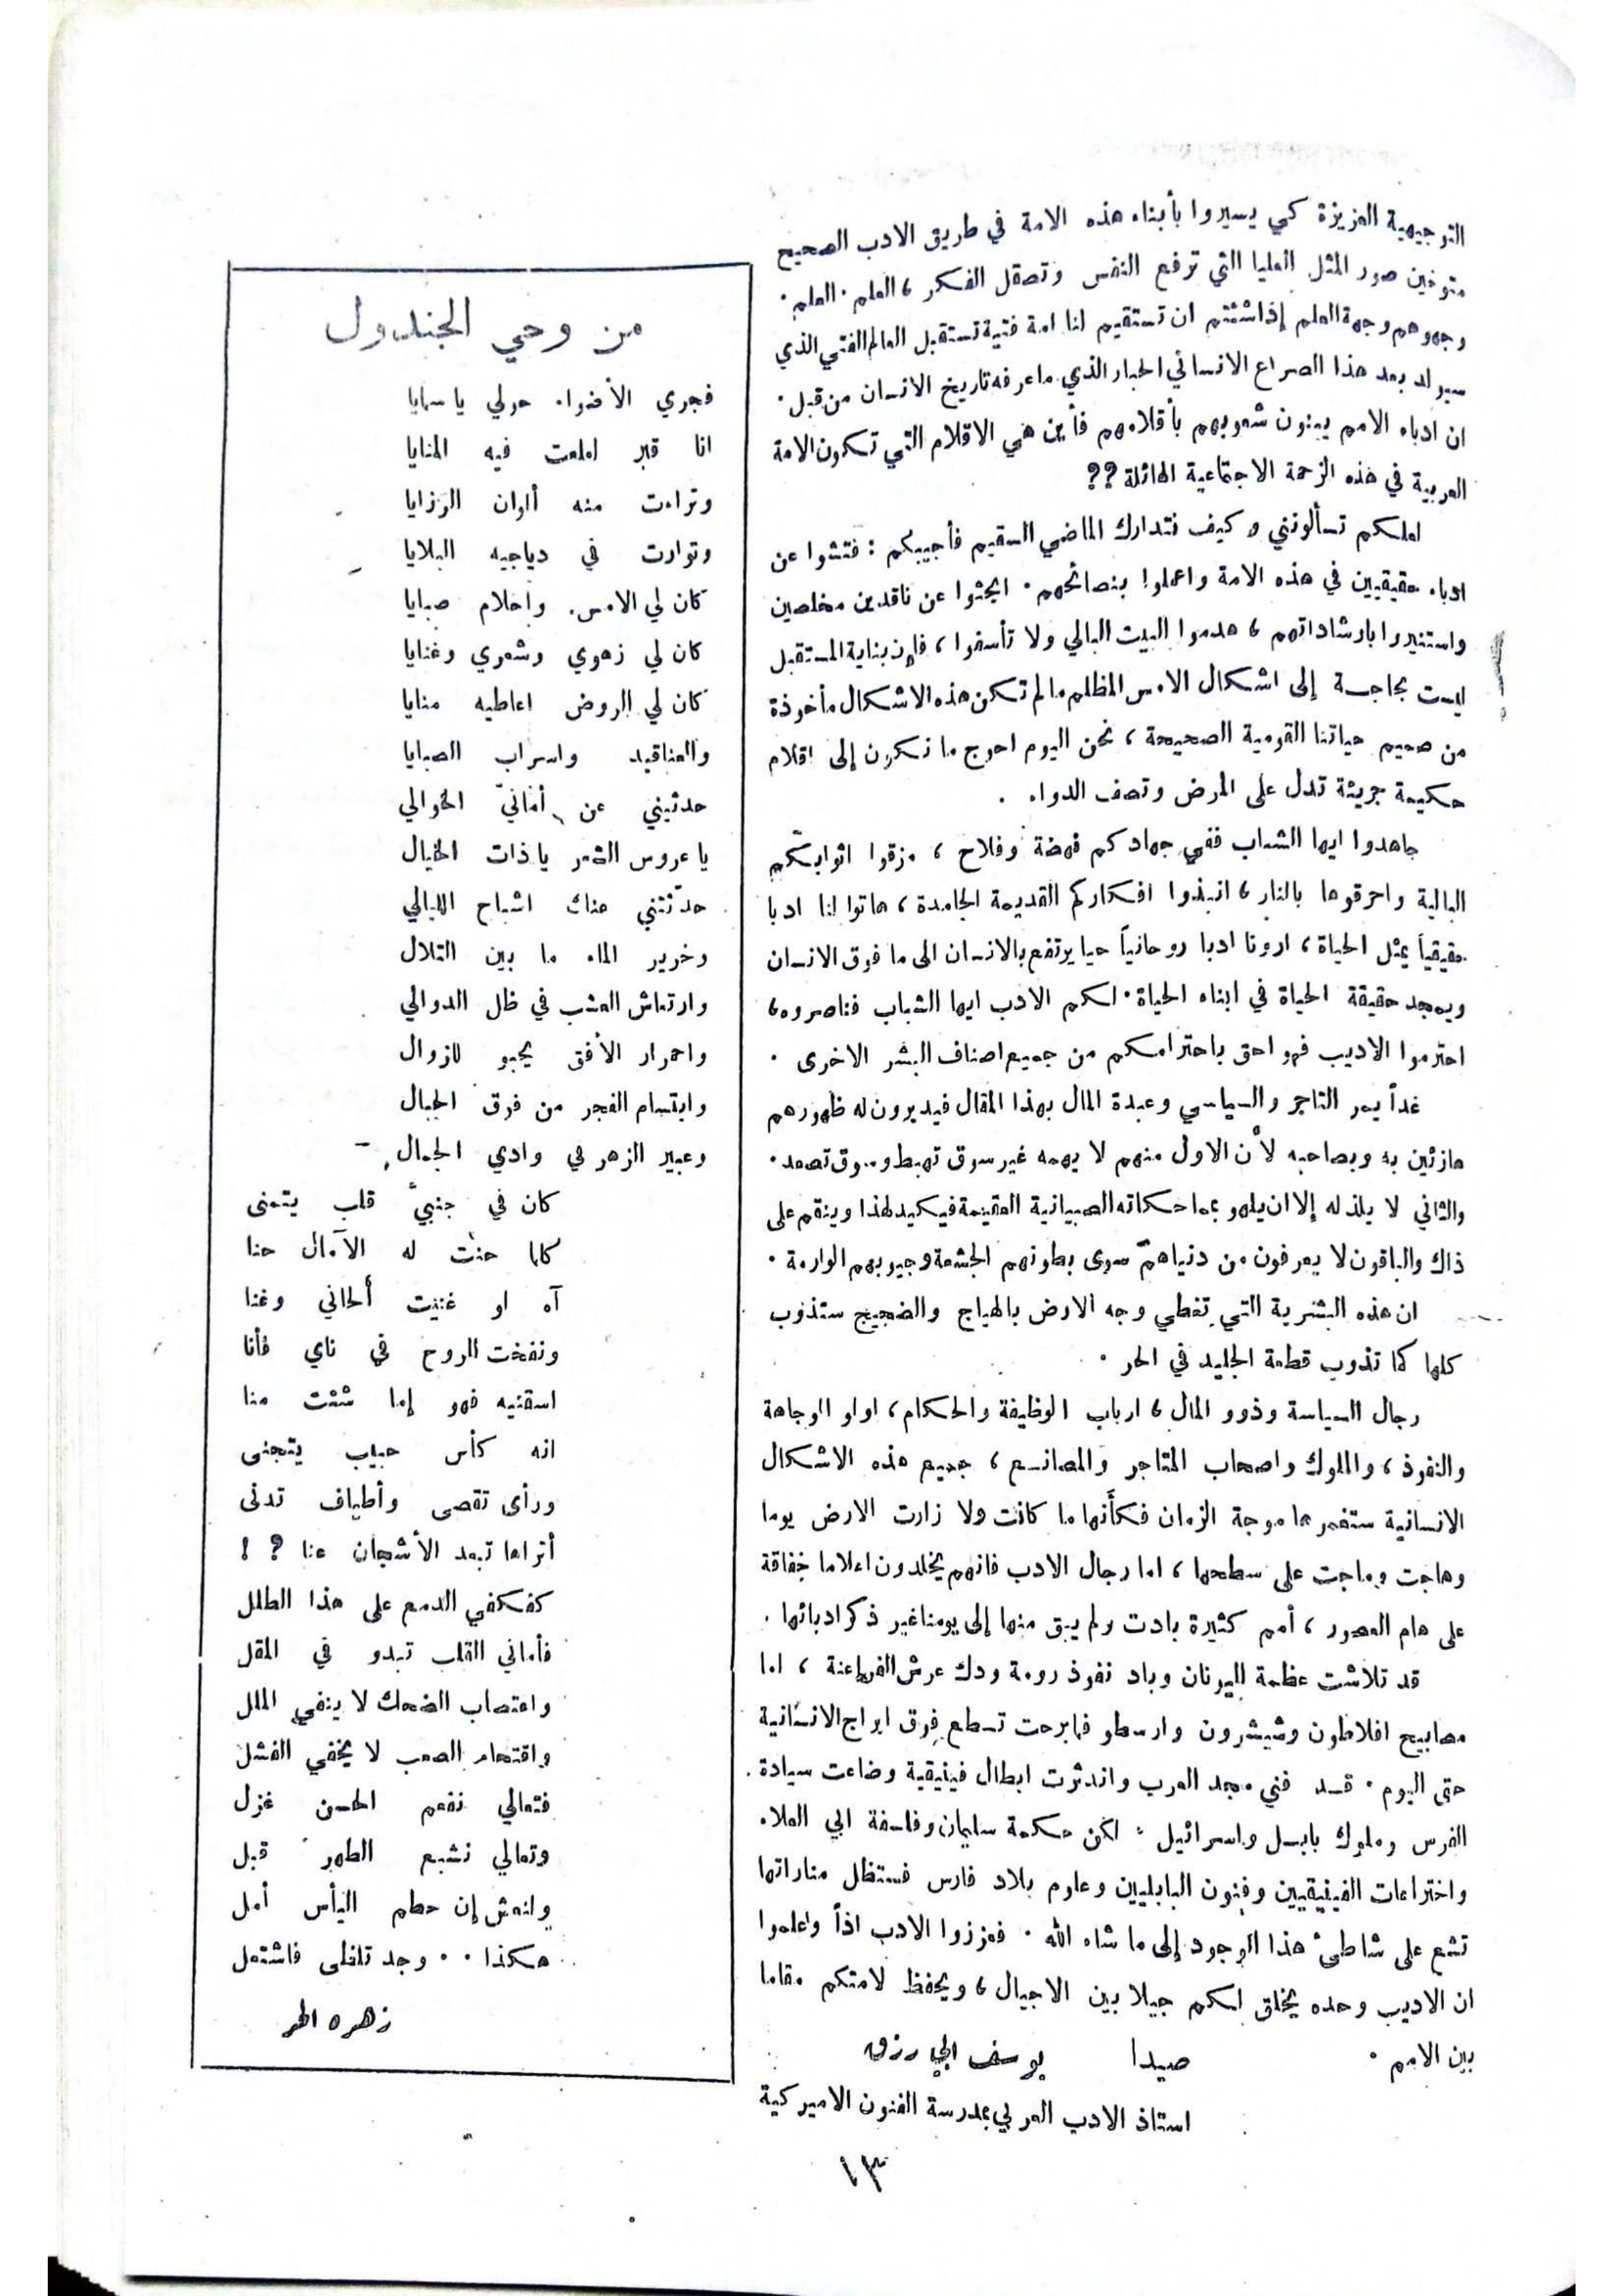 التوجيهية العزيزة كي يسيروا بأبناء هذه الامة في طريق الادب الصحيح
متوخين صور المثل العليا التي ترفع النفس وتصقل الفكر ، العلم . العلم .
وجهوهم وجهة العلم إذا شئتم ان تستقيم لنا امة فتية تستقبل العالم الفتي الذي
سيولد بعد هذا الصراع الانساني الجبار الذي ما عرفه تاريخ الانسان من قبل .
ان ادباء الامم يبنون شعوبهم بأقلامهم فأين هي الاقلام التي تكون الامة
العربية في هذه الزحمة الاجتماعية الهائلة ؟؟
لعلكم تسألونني وكيف نتدارك الماضي السقيم فأجيبكم : فتشوا عن
ادباء حقيقيين في هذه الامة واعملوا بنصائحهم . ابحثوا عن ناقدين مخلصين
واستنيروا بارشاداتهم ، هدموا البيت البالي ولا تأسفوا ، فإن بناية المستقبل
ليست بحاجة إلى اشكال الامس المظلم ما لم تكن هذه الاشكال مأخوذة
من صميم حياتنا القومية الصحيحة ، نحن اليوم احوج ما نكون إلى اقلام
حكيمة جريئة تدل على المرض وتصف الدواء .
جاهدوا ايها الشباب ففي جهادكم نهضة وفلاح ، مزقوا اثوابكم
البالية واحرقوها بالنار ، انبذوا افكاركم القديمة الجامدة ، هاتوا لنا ادبا
حقيقياً يمثل الحياة ، ارونا ادبا روحانياً حيا يرتفع بالانسان الى ما فوق الانسان
ويمجد حقيقة الحياة في ابناء الحياة . لكم الادب ايها الشباب فناصروه ،
احترموا الاديب فهو احق باحترامكم من جميع اصناف البشر الاخرى .
غداً يمر التاجر والسياسي وعبدة المال بهذا المقال فيديرون له ظهورهم
هازئين به وبصاحبه لأن الاول منهم لا يهمه غير سوق تهبط وسوق تصعد .
والثاني لا يلذ له إلا ان يلهو بماحكاته الصبيانية العقيمة فيكيد لهذا وينقم على
ذاك والباقون لا يعرفون من دنياهم سوى بطونهم الجشعة وجيوبهم الوارمة .
ان هذه البشرية التي تغطي وجه الارض بالهياج والضجيج ستذوب
كلها كما تذوب قطعة الجليد في الحر .
رجال السياسة وذوو المال ، ارباب الوظيفة والحكام ، اولو الوجاهة
والنفوذ ، والملوك واصحاب المتاجر والمصانع ، جميع هذه الاشكال
الانسانية ستغمرها موجة الزمان فكأنها ما كانت ولا زارت الارض يوما
وهاجت وماجت على سطحها ، اما رجال الادب فانهم يخلدون اعلاما خفاقة
على هام العصور ، أمم كثيرة بادت ولم يبق منها إلى يومنا غير ذكر ادبائها .
قد تلاشت عظمة اليونان وباد نفوذ رومة ودك عرش الفراعنة ، اما
مصابيح افلاطون وشيشرون وارسطو فما برحت تسطع فوق ابراج الانسانية
حتى اليوم . قد فني مجد العرب واندثرت ابطال فينيقية وضاعت سيادة
الفرس وملوك بابل واسرائيل ، لكن حكمة سليمان وفلسفة ابي العلاء
واختراعات الفينيقيين وفنون البابليين وعلوم بلاد فارس فستظل مناراتها
تشع على شاطئ هذا الوجود إلى ما شاء الله . فعززوا الادب اذاً واعلموا
ان الاديب وحده يخلق لكم جيلا بين الاجيال ، ويحفظ لامتكم مقاما
بين الامم .
صيدا يوسف ابي رزق
استاذ الادب العربي بمدرسة الفنون الاميركية
من وحي الجندول
فجري الأضواء حولي يا سمايا
انا قبر املعت فيه المنايا
وتراءت منه ألوان الرزايا
وتوارت في دياجيه البلايا
كان لي الامس . واحلام صبايا
كان لي زهوي وشعري وغنايا
كان لي الروض اعاطيه منايا
والعناقيد واسراب الصبايا
حدثيني عن أمانيّ الخوالي
يا عروس الشعر يا ذات الخيال
حدّثتني هناك اشباح الليالي
وخرير الماء ما بين التلال
وارتعاش العشب في ظل الدوالي
واحمرار الأفق يحبو للزوال
وابتسام الفجر من فوق الجبال
وعبير الزهر في وادي الجمال
كان في جنبيّ قلب يتمنى
كلما حنت له الآمال حنا
آه لو غنيت ألحاني وغنا
ونفخت الروح في ناي فأنا
اسقنيه فهو إما شئت منا
انه كأس حبيب يتجنى
ورأى تقصى وأطياف تدنى
أتراها تبعد الأشجان عنا ؟ !
كفكفي الدمع على هذا الطلل
فأماني القلب تبدو في المقل
واغتصاب الضحك لا ينفي الملل
واقتحام الصعب لا يخفي الفشل
فتعالي نفعم الحسن غزل
وتعالي نشبع الطهر قبل
ولنعش إن حطم اليأس أمل
هكذا . . وجد تلظى فاشتعل
زهره الحر
١٣